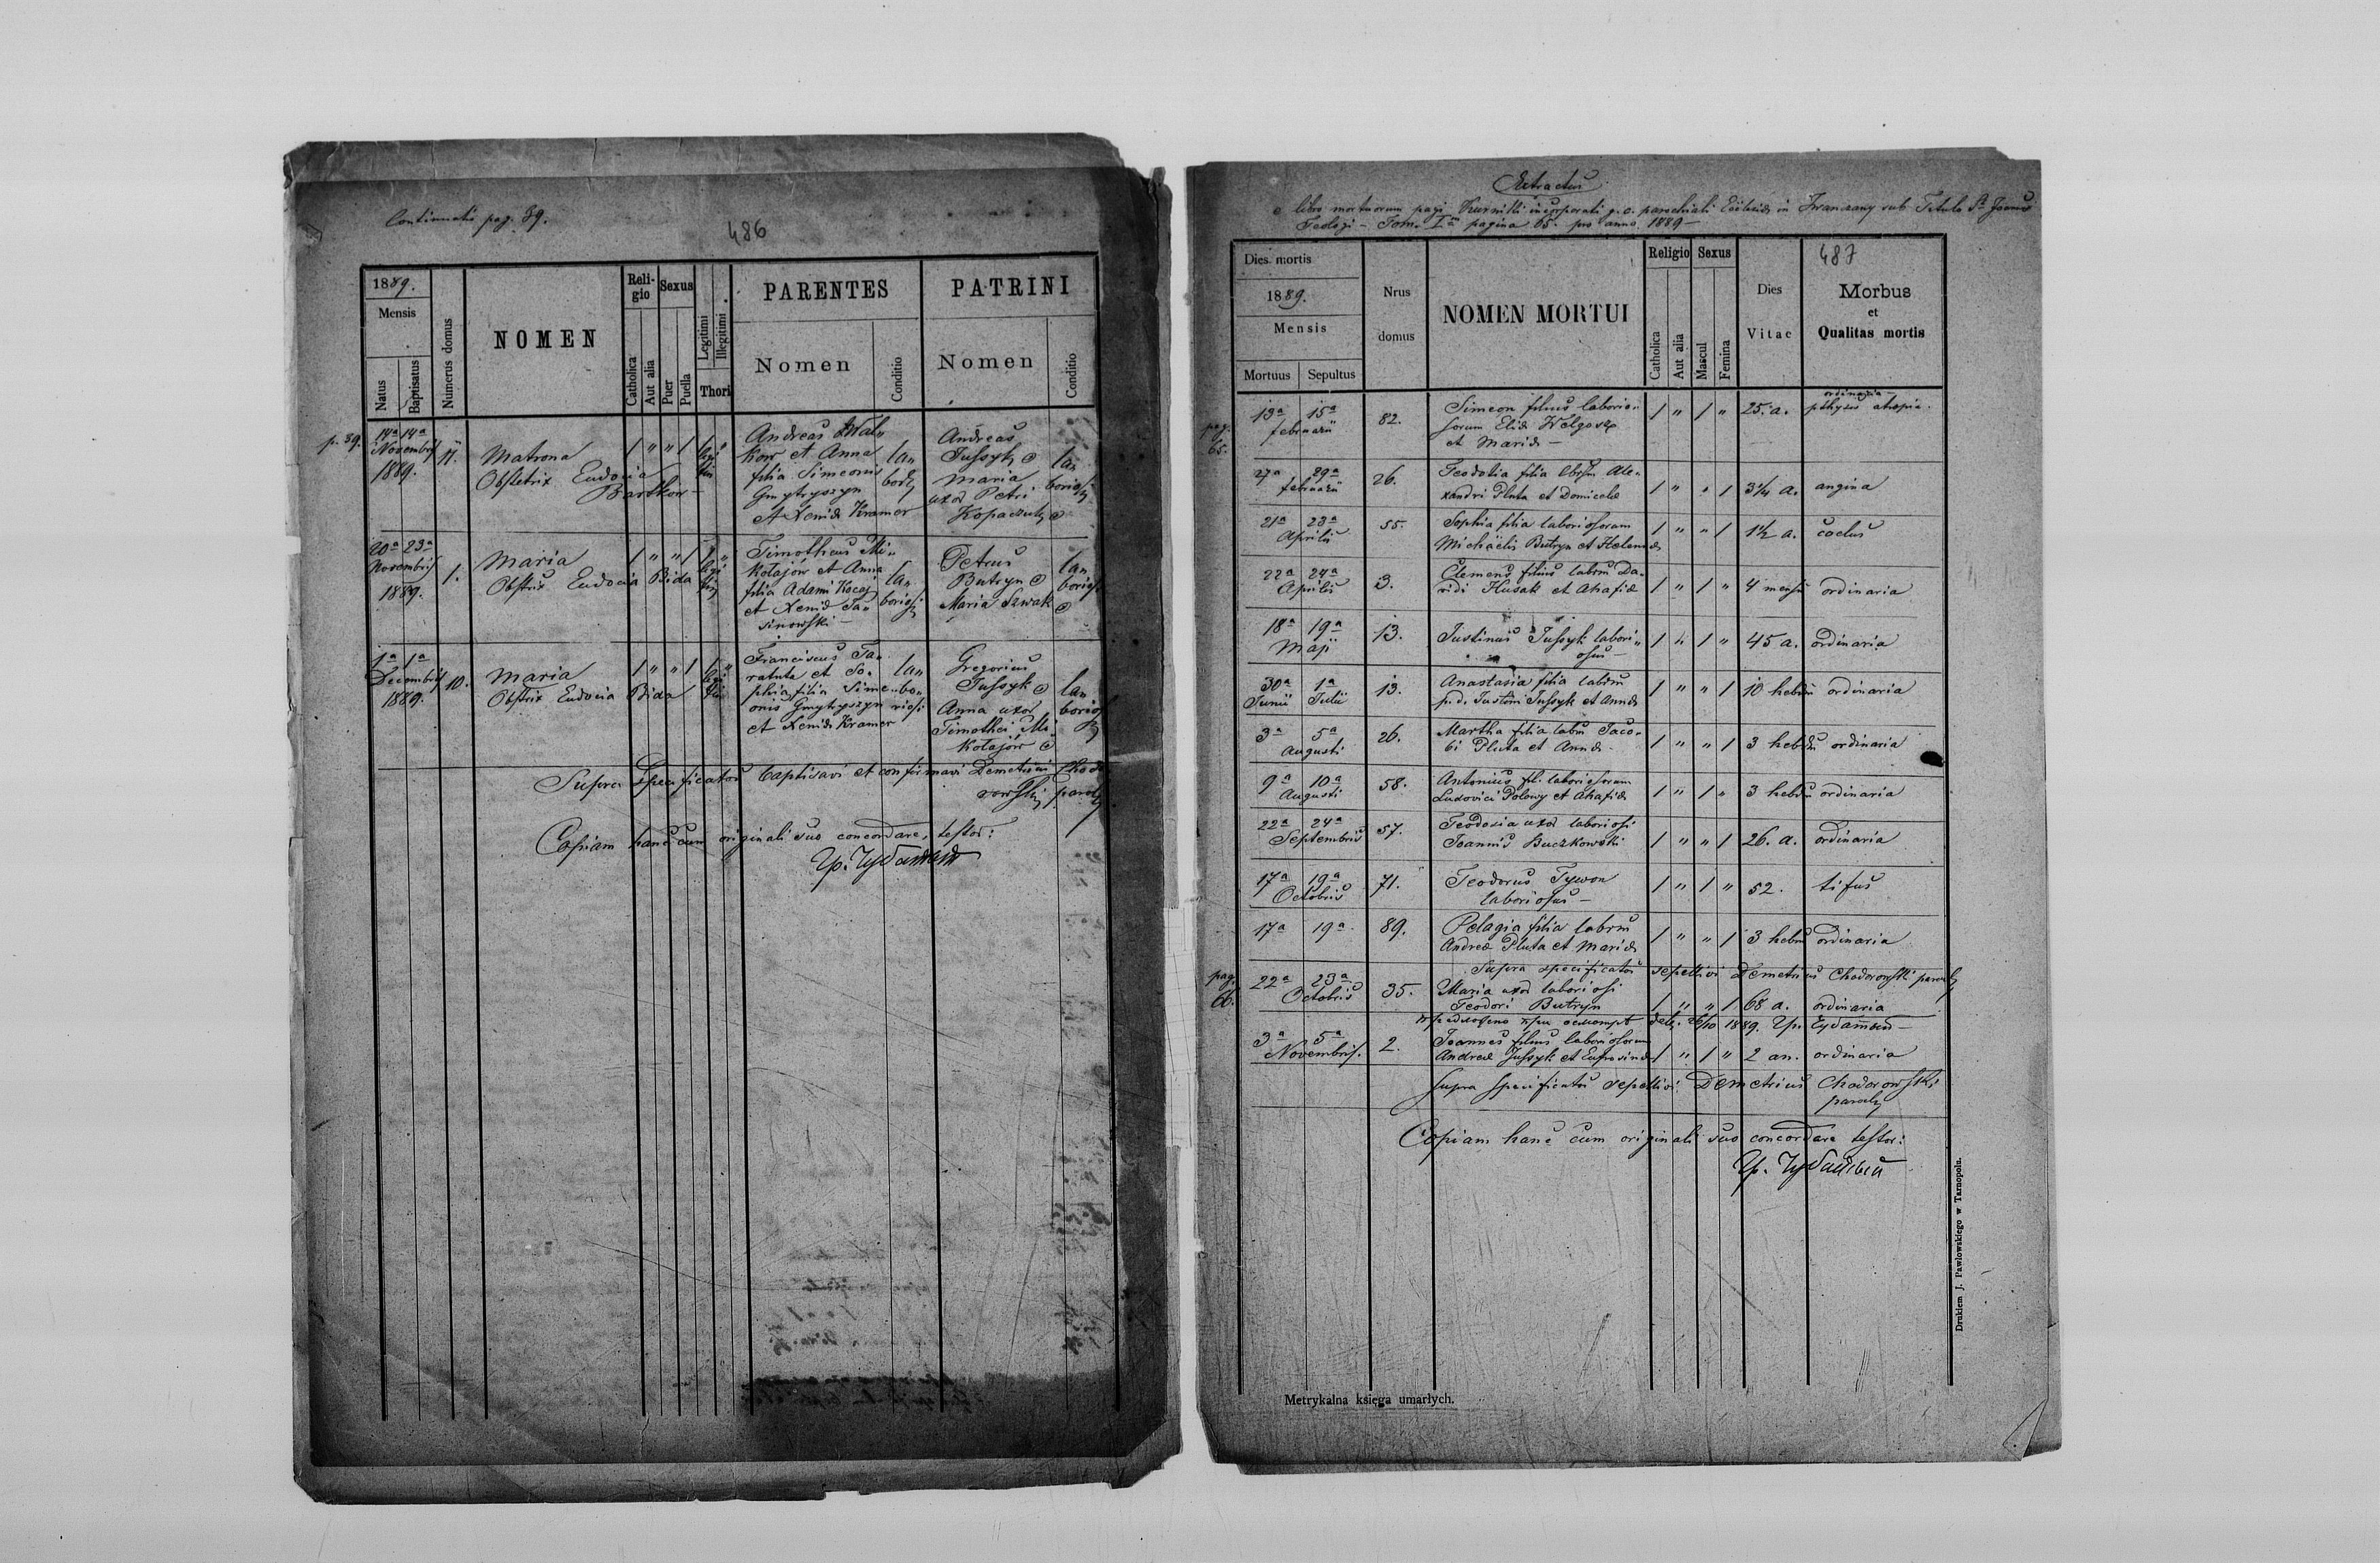 Continuatio pag. 39.
486
1889.
Mensis
Natus
Baptisatus
Numerus domus
NOMEN
Reli-
gio
Catholica
Aut alia
Sexus
Puer
Puella
Legitimi
Illegitimi
Thori
PARENTES
Nomen
Conditio
PATRINI
Nomen
Conditio
p. 39.
14a 14a
Novembris
1889.
Matrona
Obstetrix Eudocia
Bartkow
Andreas
kow et Anna
filia Simeonis
Gmytryszyn
et Xeniæ Kramer
Andreas
Jussyk
Maria
uxor Petri
Kopaczuk
20a 23a
Novembris
1889.
1.
Maria
Obstrix Eudocia Bida
Timotheus Mi„
kołajów et Anna
filia Adami Kocaj
et Xeniæ Ta„
sinowski –
la„
boriosi
Petrus
Butryn
Maria Szwak
la„
boriosi
1a 1a
Decembris
1889.
10.
Maria
Obstrix Eudocia Bida
Franciscus Ta„
ratuta et So„
phia filia Sime„
onis Gmytryszyn
et Xeniæ Kramer
la„
bo„
riosi
Gregorius
Jussyk
Anna uxor
Timothei Mi„
kołajów
la„
borios
Supra specificatos baptisavi et confirmavi Demetrius Chodo„
rowski paroch
Copiam hanc cum originali suo concordare, testor:
Extractus
e libro mortuorum pagi Kurniki incorporati g. c. parochiali Ecclesiæ in Iwanczany sub Titulo St. Joannis
Teologi – Tom. I pagina 65. pro anno 1889 –
487
Dies mortis
1889.
Mensis
Mortuus
Sepultus
Nrus
domus
NOMEN MORTUI
Religio
Catholica
Aut alia
Sexus
Mascul
Femina
Dies
Vitae
Morbus
et
Qualitas mortis
pag.
65.
13a 15a
februarii
82.
Simeon filius laborio„
sorum Eliæ
et Mariæ –
1 „ 1 „
25. a.
ordinaria
27a 29a
februarii
26.
Teodosia filia lbrsm Ale„
xandri Pluta et Domicelæ
1 „ „ 1
3¼ a.
angina
21a 23a
Aprilis
55.
Sophia filia laboriosorum
Michaelis Butryn et Helenæ
1 „ „ 1
1½ a.
22a 24a
Aprilis
3.
Clemens filius labrm Da„
vidi Husak et Ahafiæ
1 „ 1 „
4 mensi
ordinaria
18a 19a
Maji
13.
Justinus Jussyk labori„
osus –
1 „ 1 „
45 a.
ordinaria
30a 1a
Junii Julii
13.
Anastasia filia labrm
p. d. Justini Jussyk et Annæ
1 „ „ 1
10 hebdm
ordinaria
3a 5a
Augusti
26.
Martha filia labm Jaco„
bi Pluta et Annæ –
1 „ „ 1
3 hebdm
ordinaria
9a 10a
Augusti
58.
Antonius fil. laboriosorum
Ludovici Polowy et Ahafiæ
1 „ 1 „
3 hebdm
ordinaria
22a 24a
Septembris
57.
Teodosia uxor laboriosi
Joannis Buczkowski
1 „ „ 1
26. a.
ordinaria
17a 19a
Octobris
71.
Teodorus Tywon
laboriosus –
1 „ 1 „
52.
tifus
17a 19a
89.
Pelagia filia labrm
Andreæ Pluta et Mariæ
1 „ „ 1
3 hebdm
ordinaria
Supra specificatos sepelivi Demetrius Chodorowski paroch
pag.
66.
22a 23a
Octobris
35.
Maria uxor laboriosi
Teodori Butryn
1 „ „ 1
68 a.
ordinaria
26/10 1889.
3a 5a
Novembris.
2.
Joannes filius laboriosorum
Andreæ Jussyk et Eufrosinæ
1 „ 1 „
2 an.
ordinaria
Supra specificatos sepelivi: Demetrius Chodorowski
paroch
Copiam hanc cum originali suo concordare testor:
Metrykalna księga umarłych.
Drukiem J. Pawłowskiego w Tarnopolu.